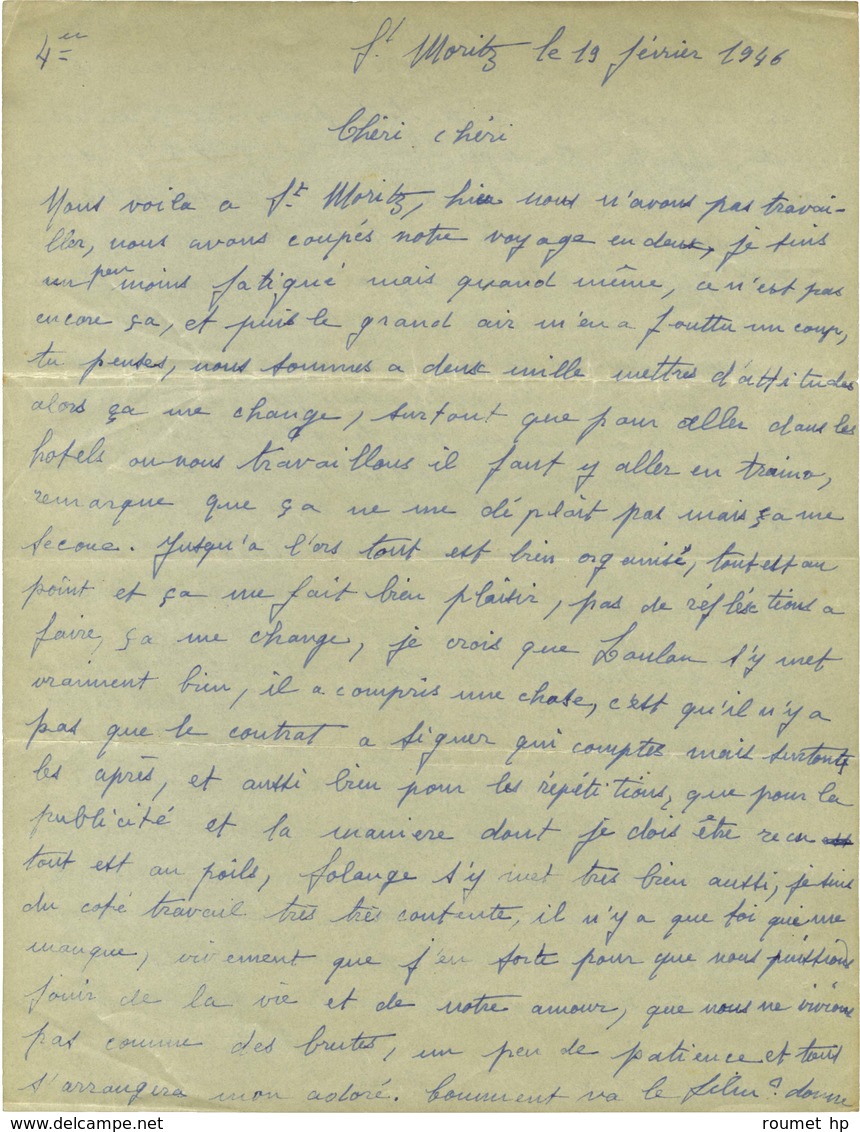 4ᵉᵉ
St Moritz le 19 février 1946
Chéri chéri
Nous voila a St Moritz, hier nous n'avons pas travai-
ller, nous avons coupés notre voyage en deux, je suis
un peu moins fatigué mais quand même, ce n'est pas
encore ça, et puis le grand air m'en a fouttu un coup,
tu penses, nous sommes a deux mille mettres d'attitudes
alors ça me change, surtout que pour aller dans les
hotels ou nous travaillons il faut y aller en traino,
remarque que ça ne me déplâit pas mais ça me
secoue. Jusqu'a l'ors tout est bien organisé, tout est au
point et ça me fait bien plaisir, pas de réfléctions a
faire, ça me change, je crois que Loulou s'y met
vraiment bien, il a compris une chose, c'est qu'il n'y a
pas que le contrat a signer qui comptes mais surtout
les après, et aussi bien pour les répétitions, que pour la
publicité et la maniere dont je dois être recu
tout est au poils, Solange s'y met très bien aussi, je suis
du coté travail très très contente, il n'y a que toi qui me
manque, vivement que j'en sorte pour que nous puissions
jouir de la vie et de notre amour, que nous ne vivions
pas comme des brutes, un peu de patience et tout
s'arrangera mon adoré. Comment va le film? donne
roumet hp